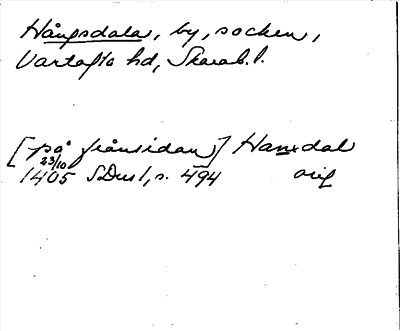 Hångsdala, by, socken,
Vartofta hd, Skarab. l.
[på frånsidan] Hanxdal
23/10
1405 SDns 1, s. 494 orig